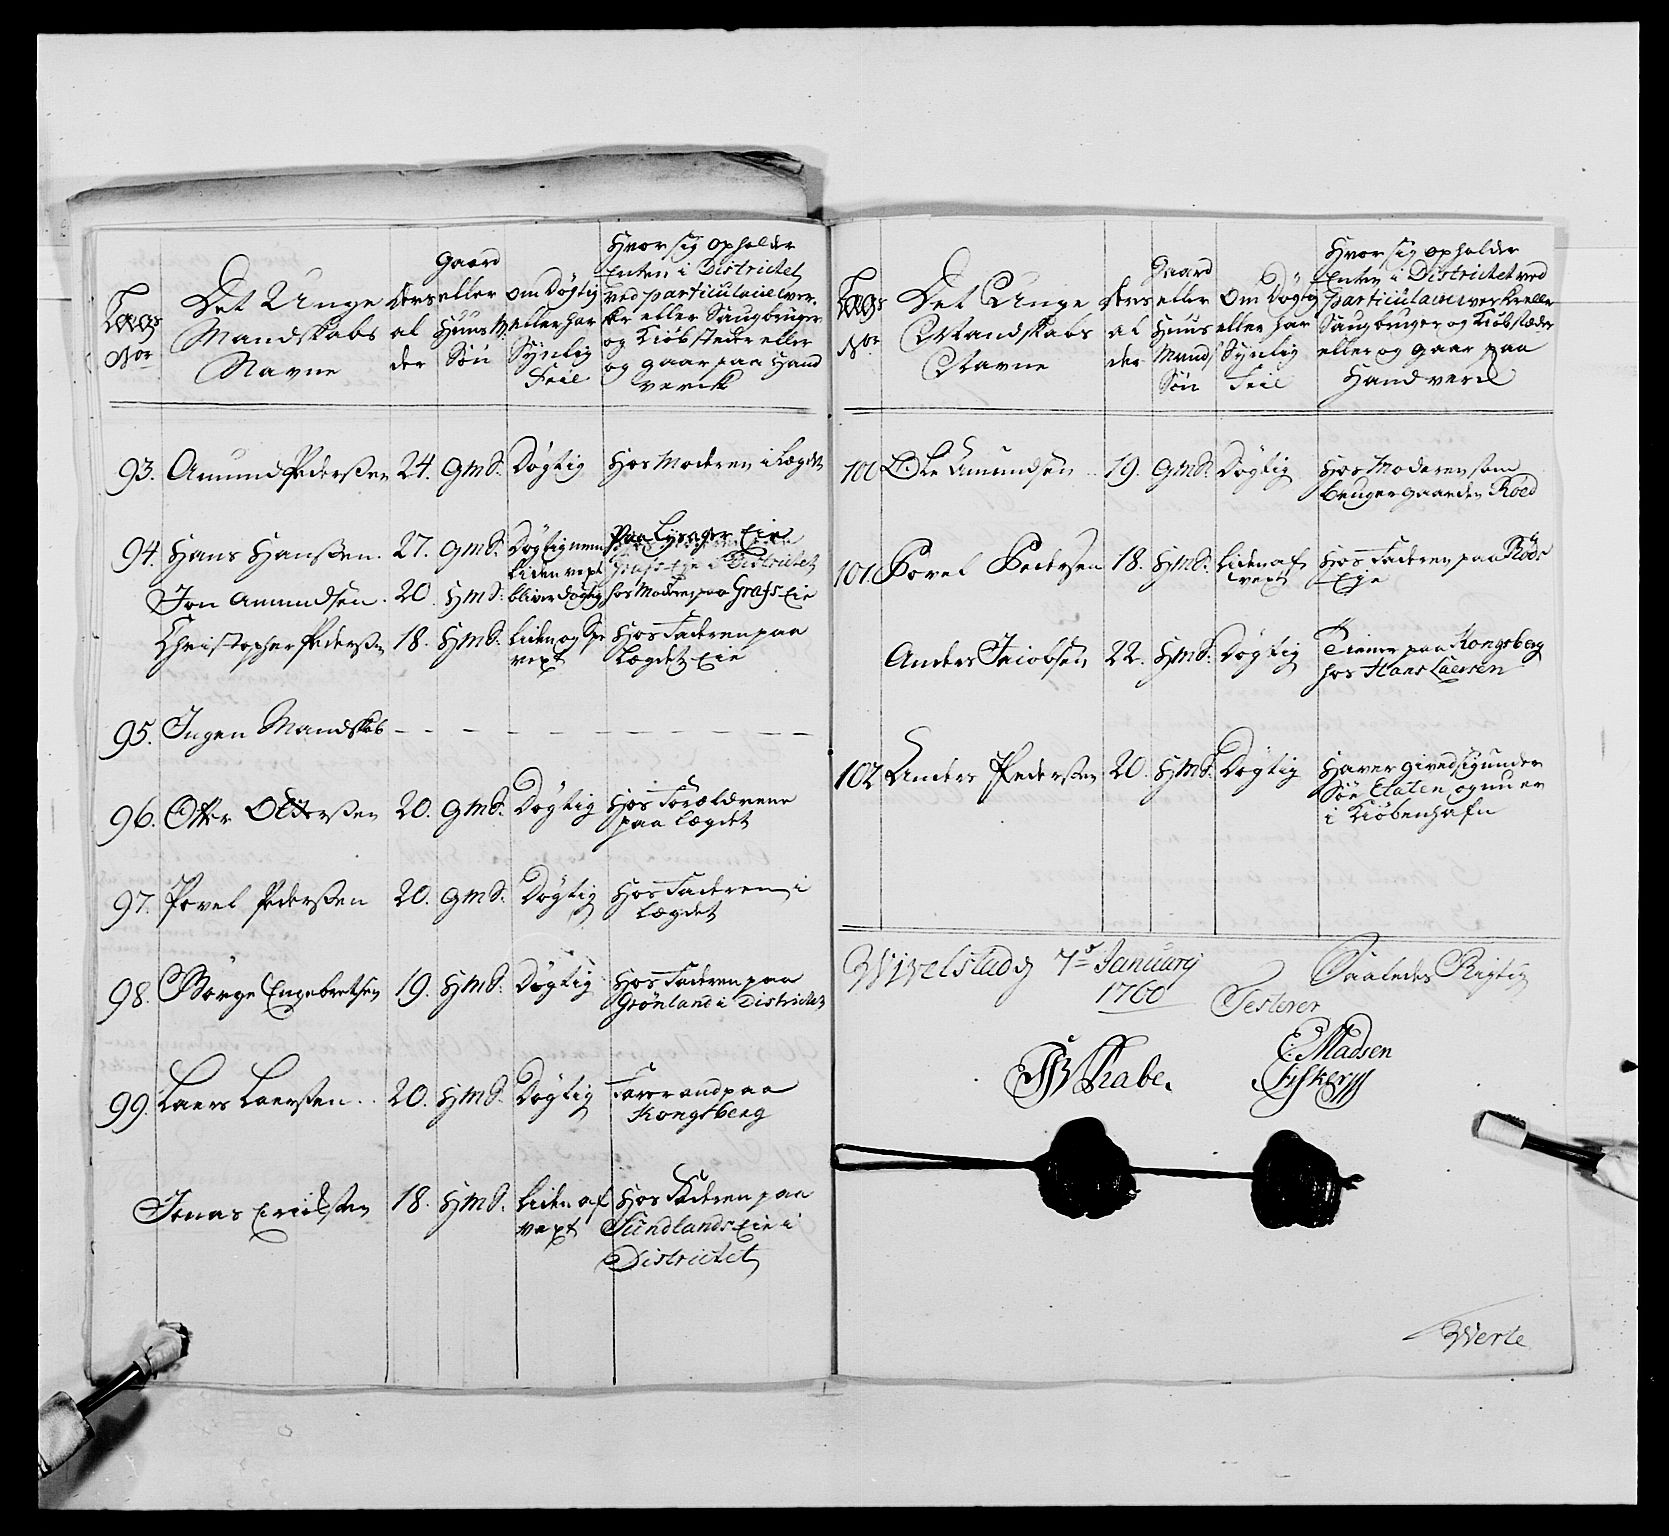 Lægs No:
Det Unge Mandskabs Navne
Ders al der
Gaard eller Huus M Søn
Om Døgtig eller har Synlig Feil
Hvor sig opholder
Enten i Districtet
ved particulaire ver
ker eller Saugbruger
og Kiøbsteder eller
og gaar paa Hand
verck
93. Amund Pederssen 24. GmS. Døgtig Hos Moderen i Lægdet
94. Hans Hanssen. 27. GmS. Døgtig men liden vext Paa Lysager Eie
Jon Amundsen. 20. HmS. bliver døgtig hos Moderen paa Grafs Eie
Christopher Pederssen 18. HmS. Liden og Spe vext Hos Faderen paa
Lægdetz Eie
95. Ingen Mandskab - - - - - - - -
96. Otter Ottersen 20. GmS. Døgtig Hos Forældrene
paa Lægdet
97. Povel Pederssen 20. GmS. Døgtig Hos Faderen i
Lægdet
98. Børge Engebretsen 19. HmS. Døgtig Hos Faderen paa
Grønland i Districtet
99. Laers Laerssen.. 20. HmS. Døgtig Farer and paa
Kongsberg
Jonas Ericksen 18. HmS. Liden af vext Hos Faderen paa
Sundlands Eie i
Districtet
Lægs No:
Det Unge Mandskabs Navne
Ders al der
Gaard eller Huus Mands Søn
Om Døgtig eller har Synlig Feil
Hvor sig opholder
Enten i Districtet ved
particulaire verker eller
Saugbruger og Kiøbstæder
eller og gaar paa
Handverck
100 Ole Amundsen .. 19. GmS. Døgtig Hos Moderen som
bruger gaarden Röed
101. Povel Pedersen 18. HmS. Liden af vext Hos Faderen paa Röds
Eye
Anders Jacobsen 22. HmS. Døgtig Tiener paa Kongsberg
hos Hans Laersen
102 Anders Pederssen 20. HmS. Døgtig Haver gived sig under
Söe Etaten og nu er
i Kiöbenhafn
Wivelstad d 7de January
1760
Saaledes Rigtig
Testerer
Rabe.
E: Madsen
Fiskerss
Verte